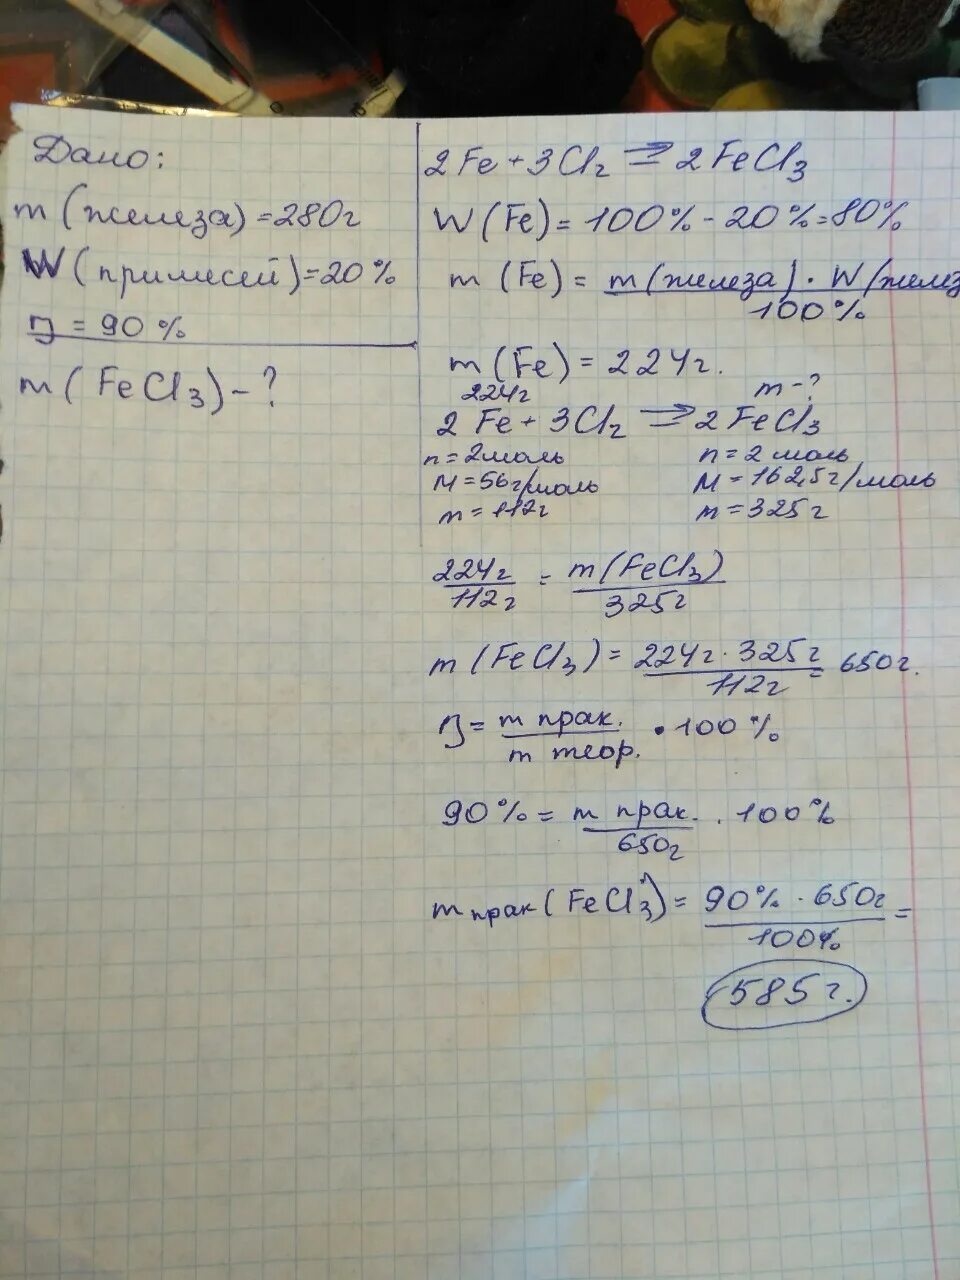 Дано:
m (железа) = 280г
W (примесей) = 20%
η = 90 %
m ( FeCl3) - ?
2Fe + 3Cl2 ⇒ 2FeCl3
W (Fe) = 100% - 20% = 80%
m (Fe) = m (железа) · W (желез
100%
m (Fe) = 224г.
224г m - ?
2 Fe + 3Cl2 ⇒ 2 FeCl3
n = 2 моль n = 2 моль
M = 56 г/моль M = 162,5 г/моль
m = 112г m = 325г
224г = m (FeCl3)
112г 325г
m (FeCl3) = 224г · 325г = 650г.
112г
η = m прак. · 100 %
m теор.
90 % = m прак. · 100%
650г
m прак (FeCl3) = 90% · 650г =
100%
585г.